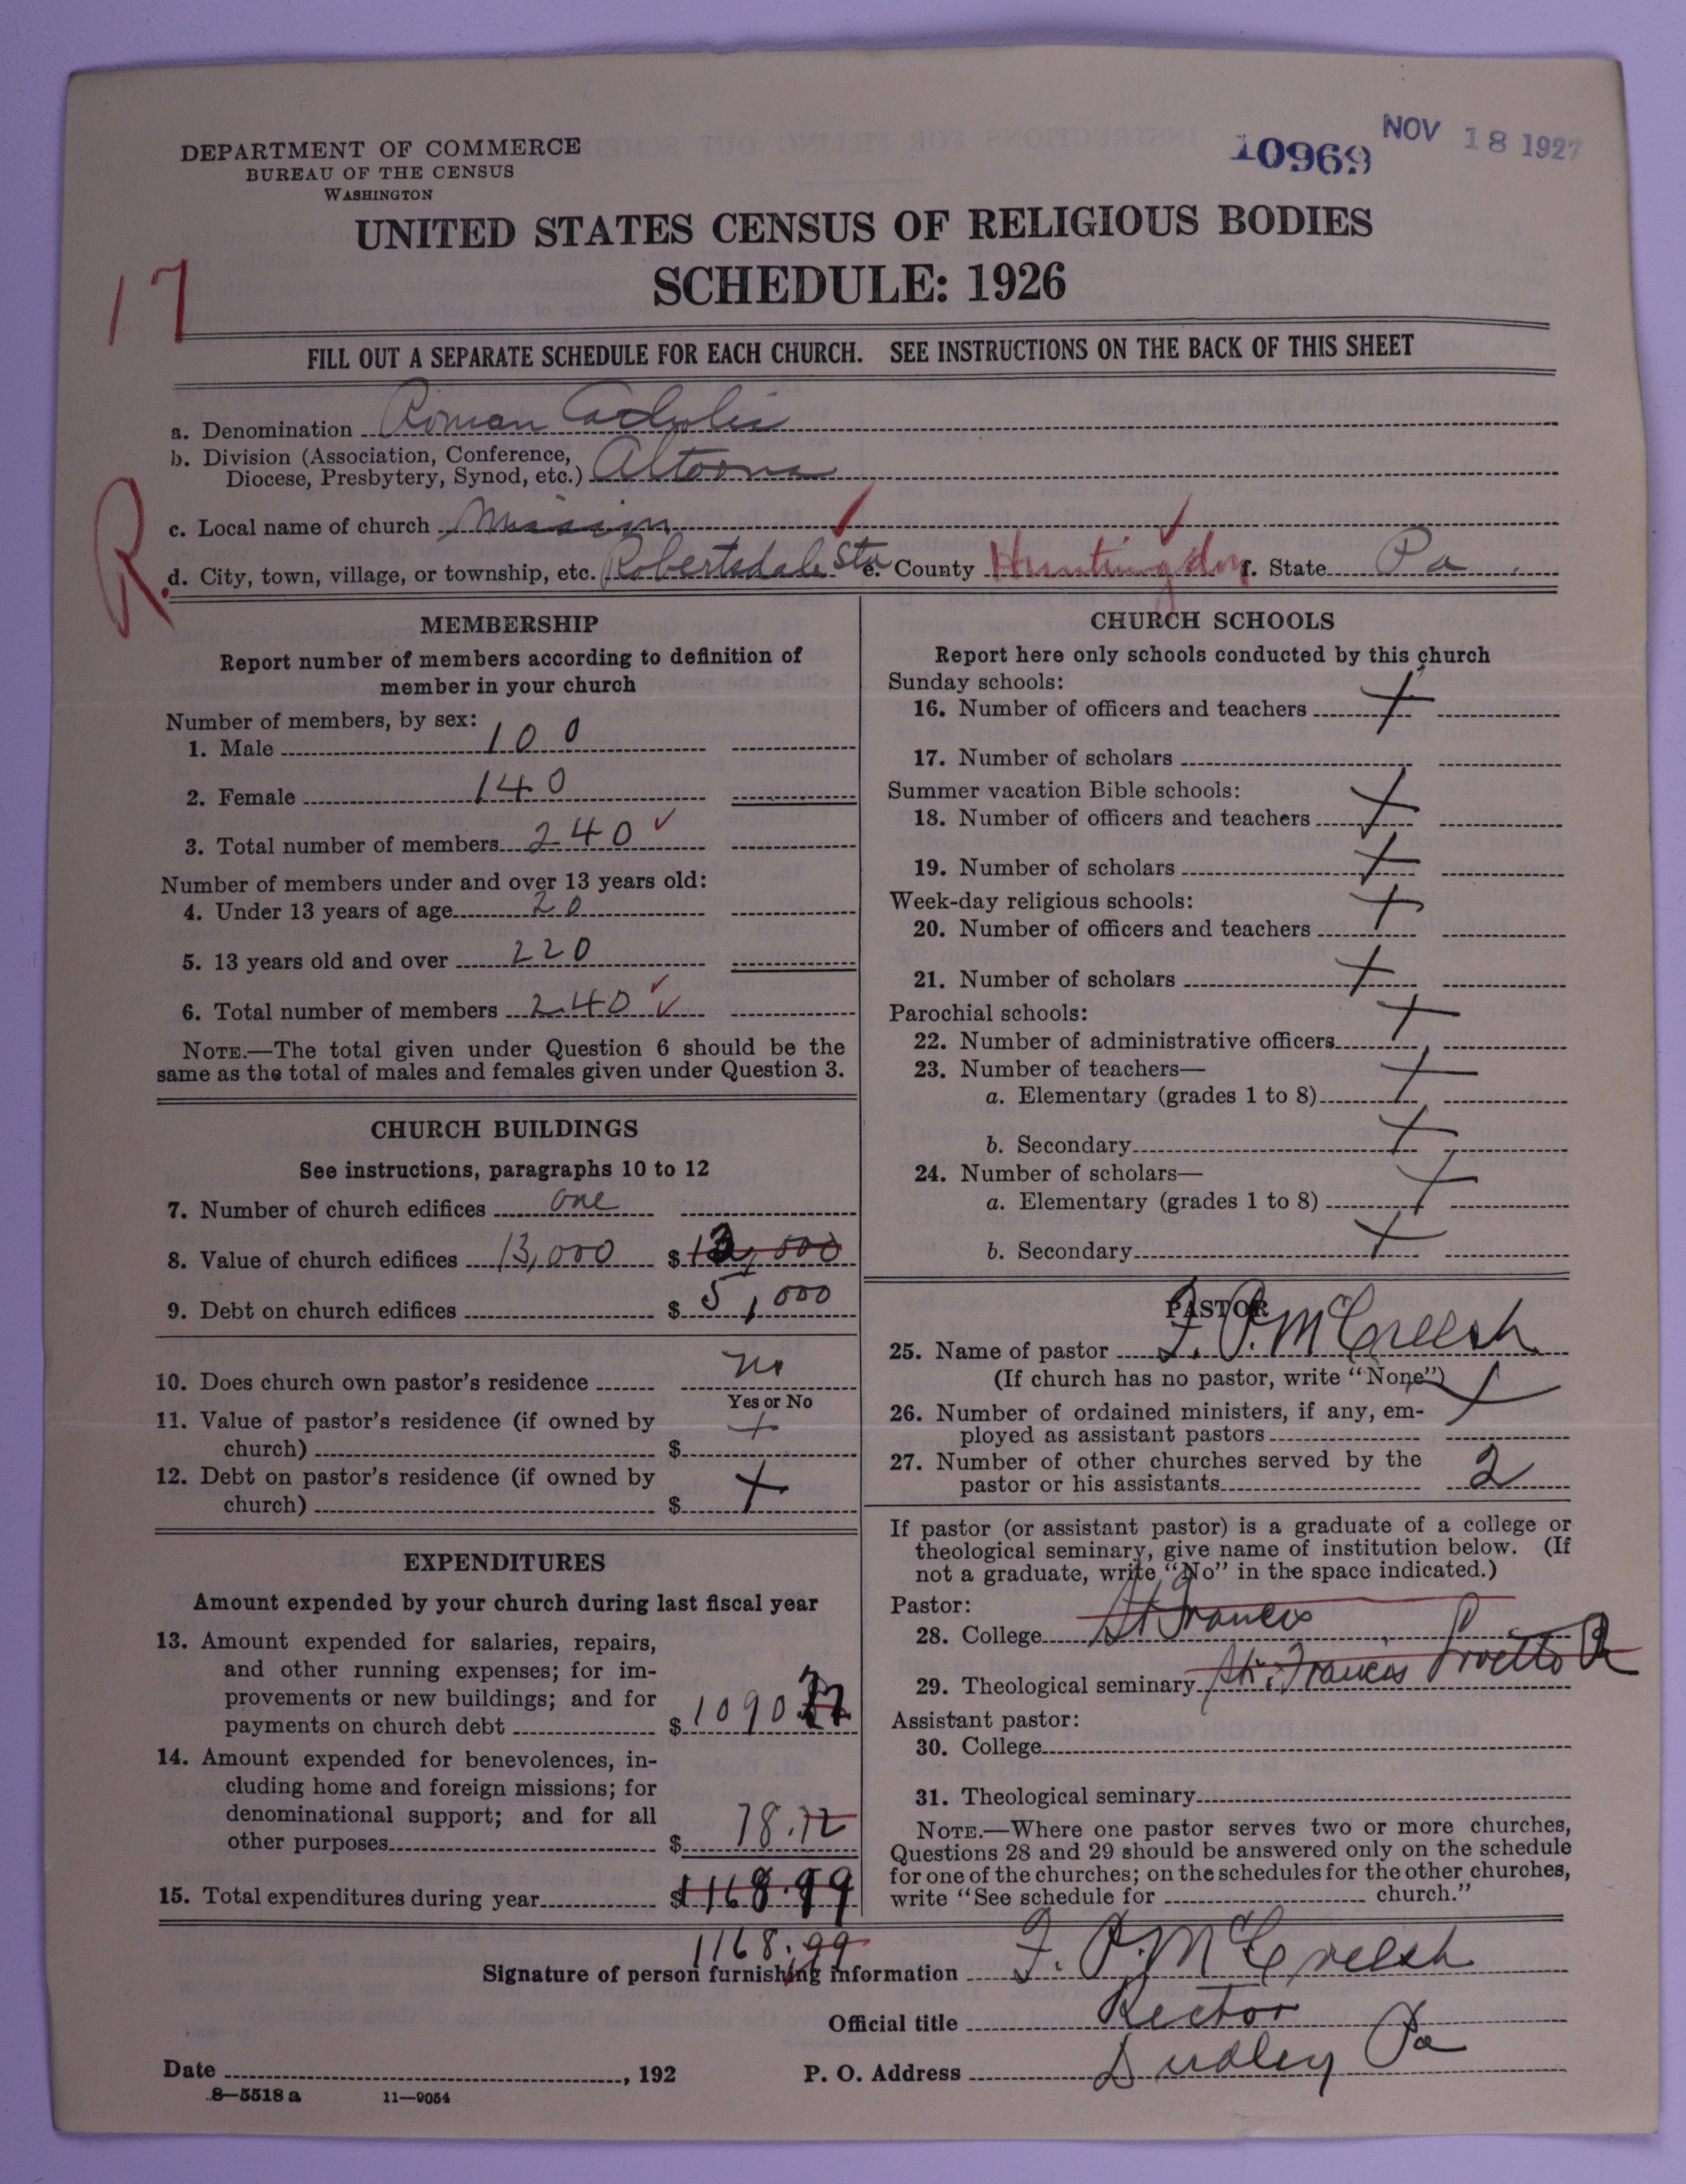 DEPARTMENT OF COMMERCE
BUREAU OF THE CENSUS
WASHINGTON
10969 NOV 18 1927
UNITED STATES CENSUS OF RELIGIOUS BODIES
SCHEDULE: 1926
17
FILL OUT A SEPARATE SCHEDULE FOR EACH CHURCH. SEE INSTRUCTIONS ON THE BACK OF THIS SHEET
a. Denomination Roman Catholic
b. Division (Association, Conference,
Diocese, Presbytery, Synod, etc.) Altoona
R
c. Local name of church Mission
d. City, town, village, or township, etc. Robertsdale Sta e. County Huntingdon f. State Pa
MEMBERSHIP
Report number of members according to definition of
member in your church
Number of members, by sex:
1. Male 100
2. Female 140
3. Total number of members 240 ✓
Number of members under and over 13 years old:
4. Under 13 years of age 20
5. 13 years old and over 220
6. Total number of members 240 ✓
NOTE.—The total given under Question 6 should be the
same as the total of males and females given under Question 3.
CHURCH BUILDINGS
See instructions, paragraphs 10 to 12
7. Number of church edifices one
8. Value of church edifices 13,000 $ 13,000
9. Debt on church edifices $ 5,000
10. Does church own pastor's residence no
Yes or No
11. Value of pastor's residence (if owned by
church) $ +
12. Debt on pastor's residence (if owned by
church) $ +
EXPENDITURES
Amount expended by your church during last fiscal year
13. Amount expended for salaries, repairs,
and other running expenses; for im-
provements or new buildings; and for
payments on church debt $ 1090
14. Amount expended for benevolences, in-
cluding home and foreign missions; for
denominational support; and for all
other purposes $ 78.72
15. Total expenditures during year $1168.99
1168.99
CHURCH SCHOOLS
Report here only schools conducted by this church
Sunday schools:
16. Number of officers and teachers +
17. Number of scholars
Summer vacation Bible schools:
18. Number of officers and teachers +
19. Number of scholars +
Week-day religious schools:
20. Number of officers and teachers +
21. Number of scholars +
Parochial schools:
22. Number of administrative officers +
23. Number of teachers—
a. Elementary (grades 1 to 8) +
b. Secondary +
24. Number of scholars—
a. Elementary (grades 1 to 8) +
b. Secondary +
PASTOR
25. Name of pastor F. P. McCreesh
(If church has no pastor, write "None")
26. Number of ordained ministers, if any, em-
ployed as assistant pastors +
27. Number of other churches served by the
pastor or his assistants 2
If pastor (or assistant pastor) is a graduate of a college or
theological seminary, give name of institution below. (If
not a graduate, write "No" in the space indicated.)
Pastor:
28. College St Francis
29. Theological seminary St. Francis Loretto Pa
Assistant pastor:
30. College
31. Theological seminary
NOTE.—Where one pastor serves two or more churches,
Questions 28 and 29 should be answered only on the schedule
for one of the churches; on the schedules for the other churches,
write "See schedule for church."
Signature of person furnishing information F. P. McCreesh
Official title Rector
Date , 192 P. O. Address Dudley Pa
8—5518 a 11—9054